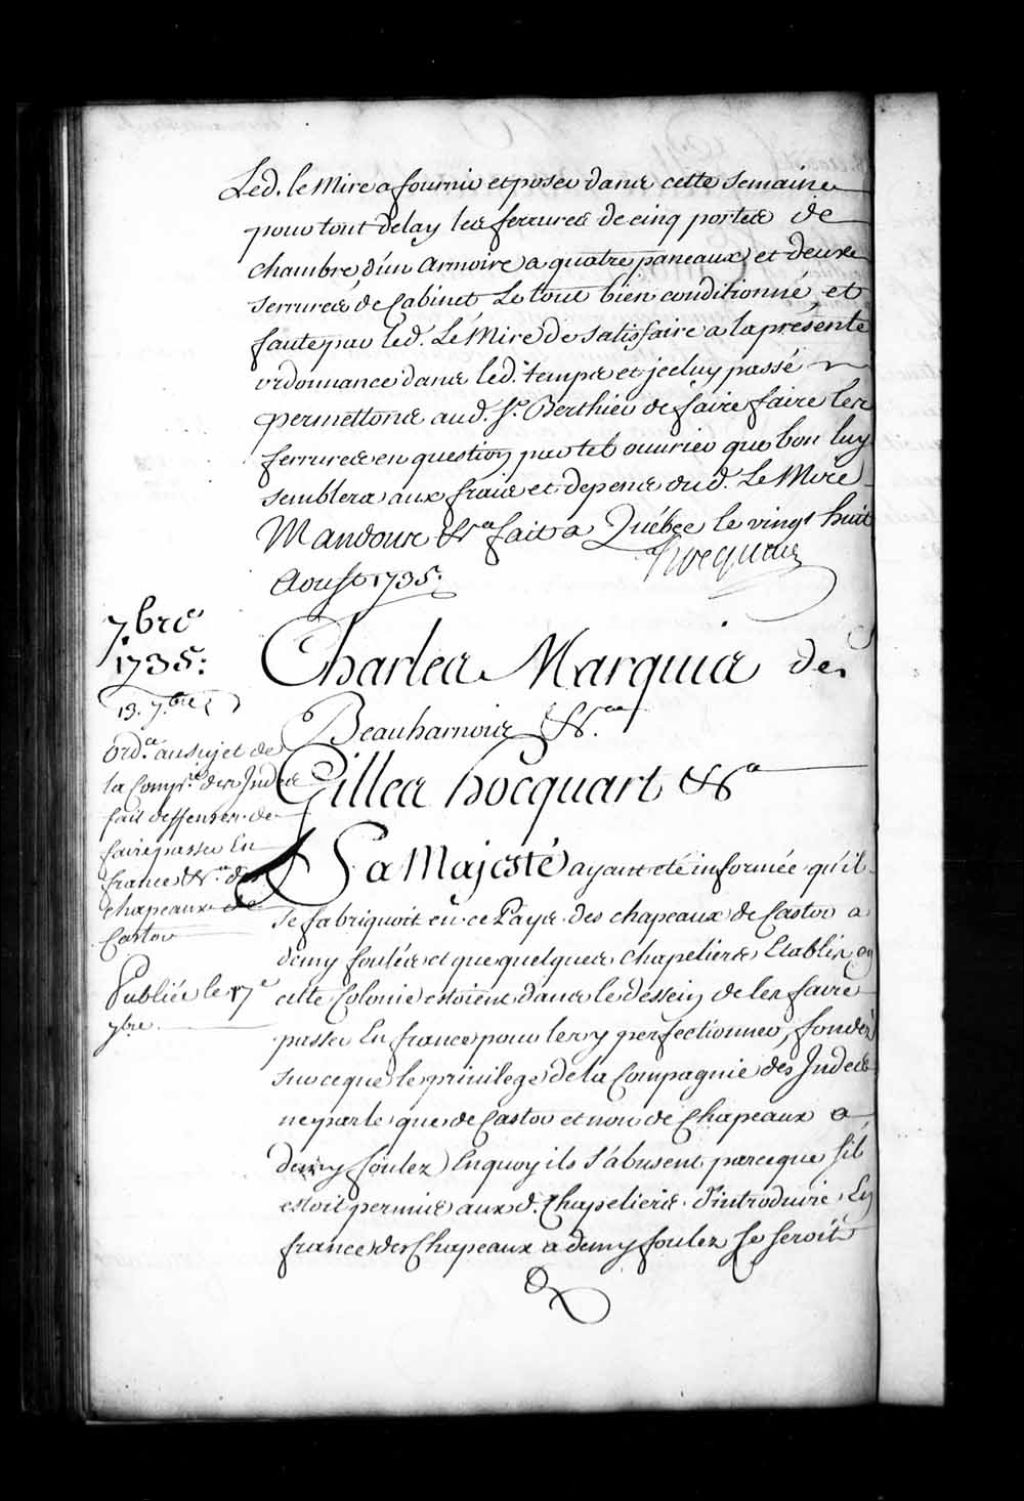 Led. le Mire a fournir et poser dans cette semaine
pour tout delay les ferrures de cinq portes de
chambre d'un armoire a quatre paneaux et deux
serrures de Cabinet Le tout bien conditionné et
faute par led. Le Mire de satisfaire a la présente
ordonnance dans led. temps et jceluy passé
permettons aud. Sr. Berthier de faire faire les
ferrures en question par tel ouvrier que bon luy
semblera aux frais et depens dud. Le Mire
Mandons &ca fait a Québec le vingt huit
Aoust 1735.
Hocquart
7.bre
1735:
13. 7.bre
Ord.ce au sujet de
la Comp.ie des Indes
fait deffenses de
faire passer En
france &ca des
chapeaux de
Castor
Publiée le 17e
7bre.
Charles Marquis de
Beauharnois &ca.
Gilles hocquart &ca
Sa Majesté ayant eté informée qu'il
se fabriquoit en ce Pays des chapeaux de Castor a
demy foulés et que quelques chapeliers Etablis en
cette Colonie estoient dans le dessein de les faire
passer En france pour les y perfectionner, fondés
sur ce que le privilege de la Compagnie des Indes
ne parle que de Castor et non de Chapeaux a
demy foulez Enquoy ils s'abusent parceque s'il
estoit permis aux d. Chapeliers d'introduire En
france des Chapeaux a demy foulez se seroit